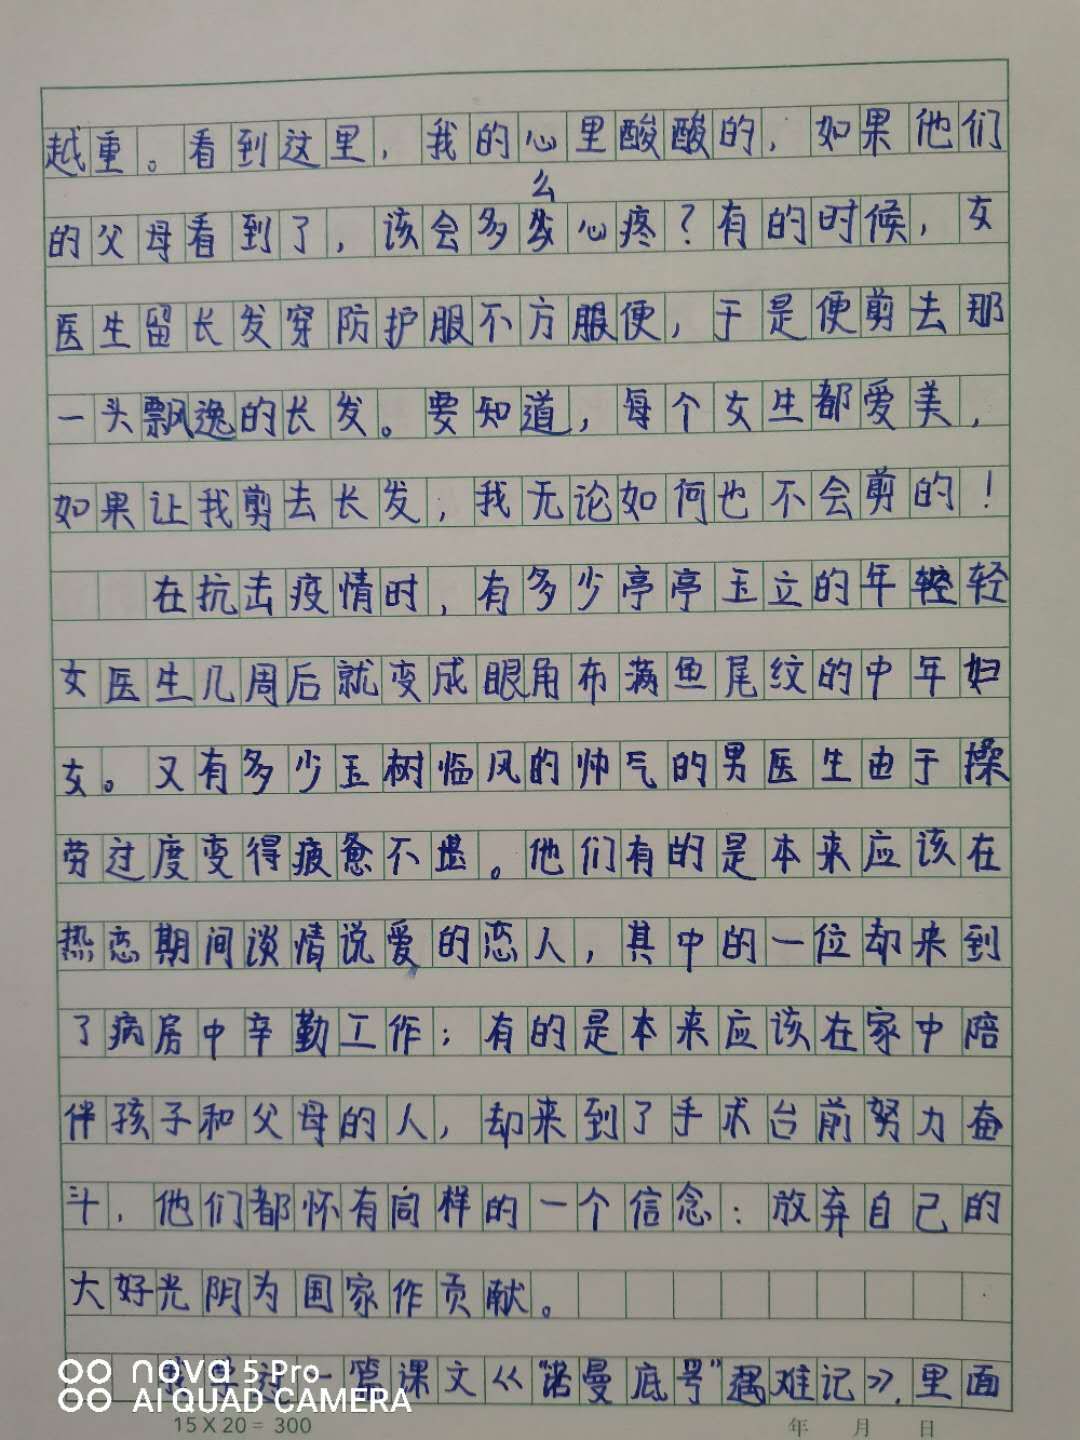 越重。看到这里，我的心里酸酸的，如果他们
么
的父母看到了，该会多心疼？有的时候，女
医生留长发穿防护服不方服便，于是便剪去那
一头飘逸的长发。要知道，每个女生都爱美，
如果让我剪去长发，我无论如何也不会剪的！
在抗击疫情时，有多少亭亭玉立的年轻轻
女医生几周后就变成眼角布满鱼尾纹的中年妇
女。又有多少玉树临风的帅气的男医生由于操
劳过度变得疲惫不堪。他们有的是本来应该在
热恋期间谈情说爱的恋人，其中的一位却来到
了病房中辛勤工作；有的是本来应该在家中陪
伴孩子和父母的人，却来到了手术台前努力奋
斗，他们都怀有同样的一个信念：放弃自己的
大好光阴为国家作贡献。
一篇课文《“诺曼底号”遇难记》，里面
nova 5 Pro
AI QUAD CAMERA
15×20=300 年 月 日